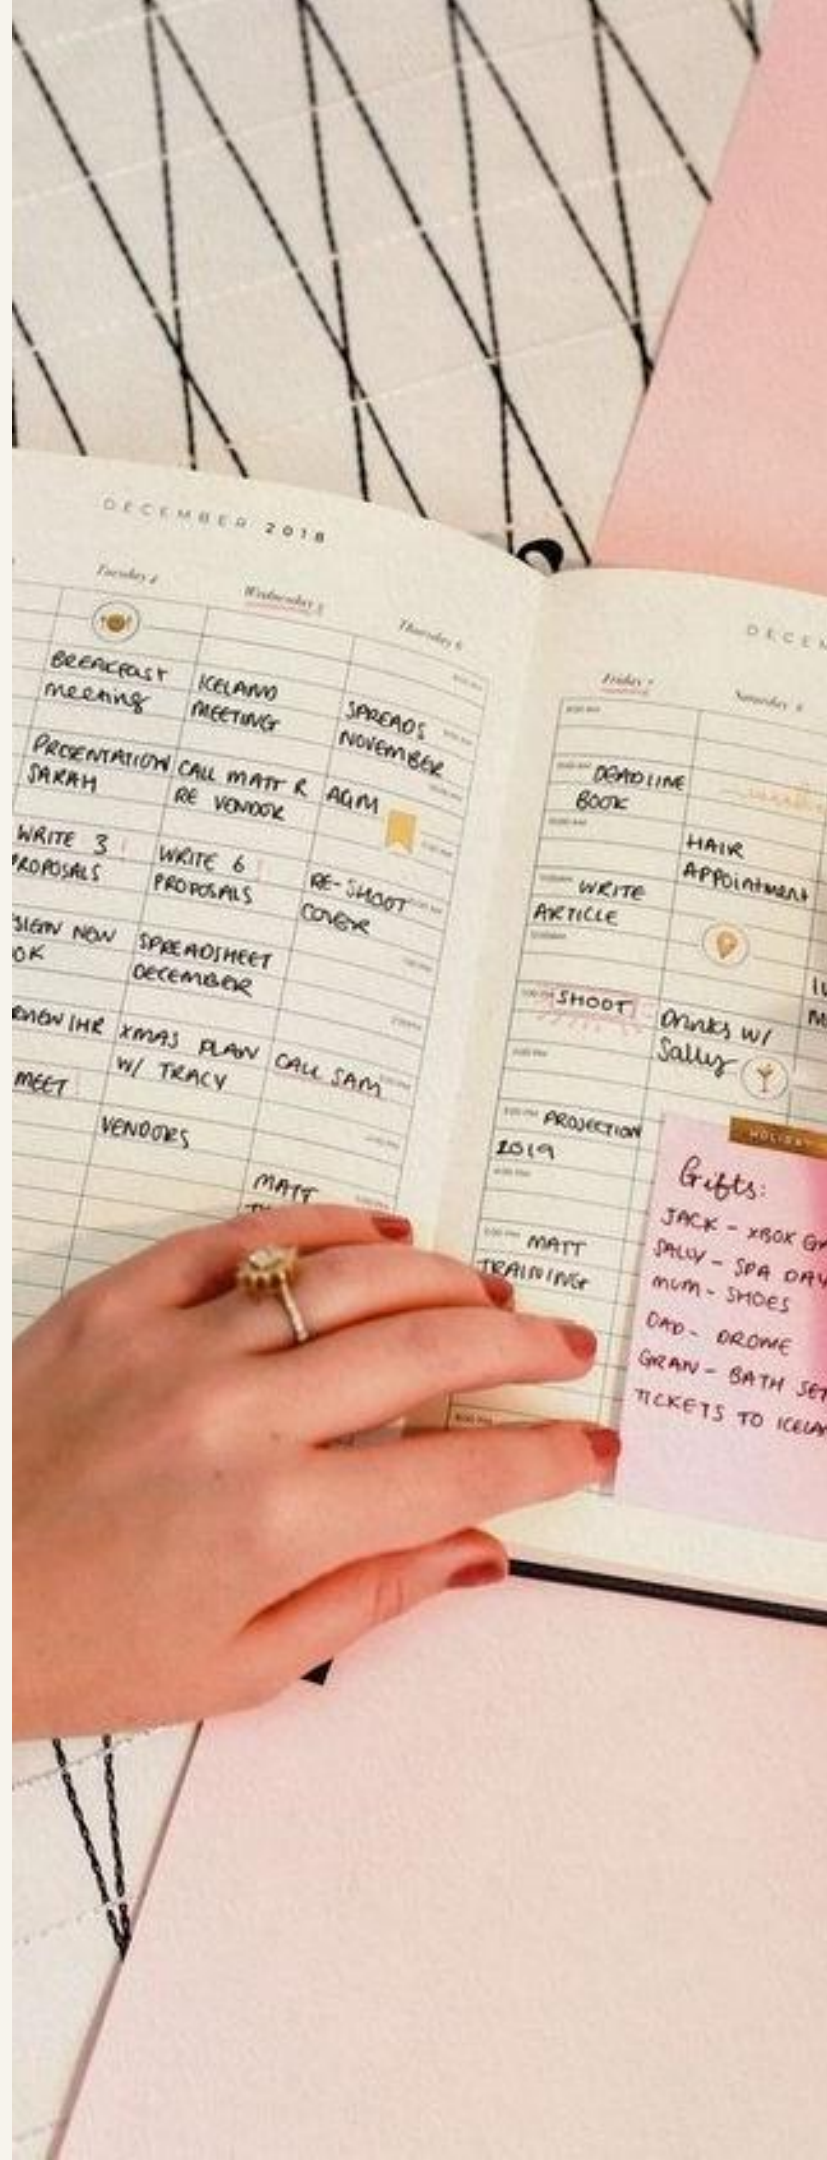 DECEMBER 2018
Tuesday 4
BREAKFAST
meeting
PRESENTATION
SARAH
WRITE 3
PROPOSALS
NEW
OK
IHR
MEET
Wednesday 5
ICELAND
MEETING
CALL MATT R
RE VENDOR
WRITE 6
PROPOSALS
SPREADSHEET
DECEMBER
XMAS PLAN
W/ TRACY
VENDORS
Thursday 6
SPREADS
NOVEMBER
AGM
RE-SHOOT
COVER
CALL SAM
MATT
DECEM
Friday 7
DEADLINE
BOOK
WRITE
ARTICLE
SHOOT
PROJECTION
2019
MATT
TRAINING
Saturday 8
HAIR
APPOINTMENT
Drinks W/
Sally
HOLIDAY
Gifts:
JACK - XBOX
SALLY - SPA DAY
MUM - SHOES
DAD - DROME
GRAN - BATH SET
TICKETS TO ICELA